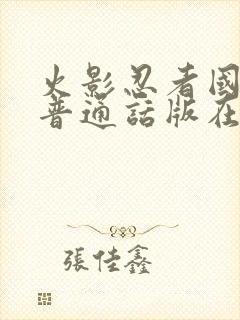 火影忍者國
普通話版在
張佳鑫